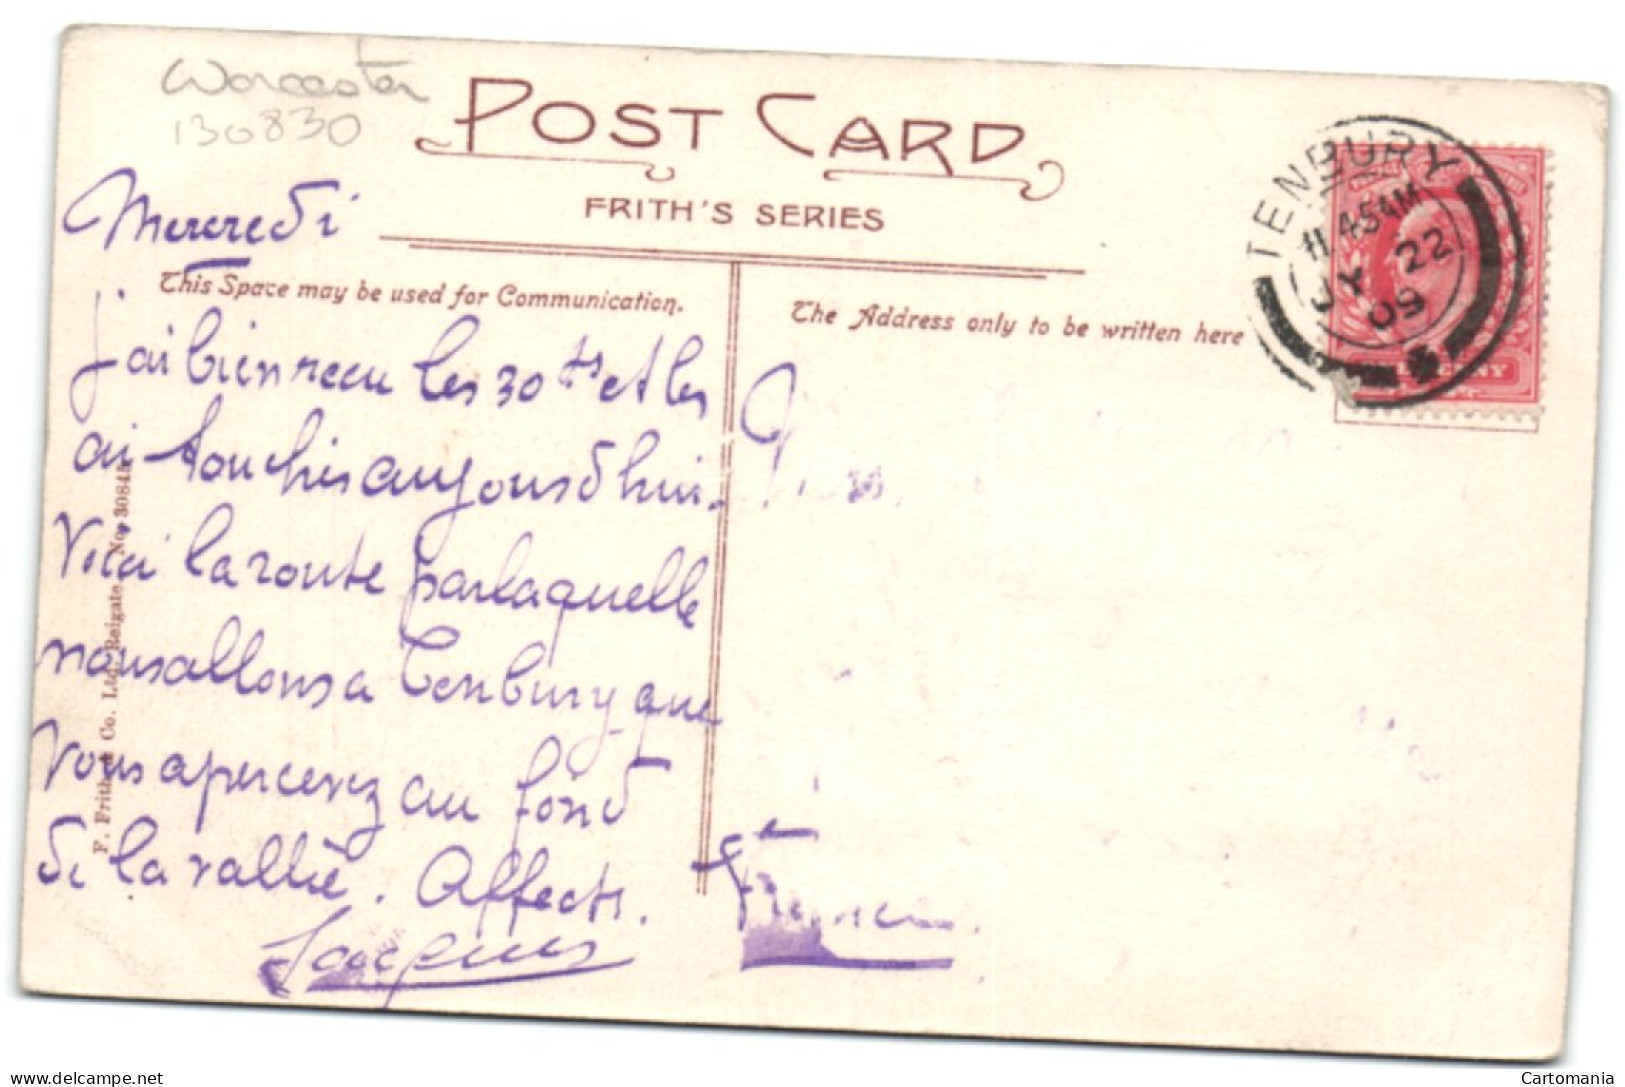 Worcester
130830
POST CARD
FRITH'S SERIES
This Space may be used for Communication.
The Address only to be written here
TENBURY
11.45AM
JY 22
09
Mercredi
J'ai bien recu les 30 ts et les
ai touchés aujourd'hui.
Voici la route par laquelle
nous allons a Tenbury que
vous apercevez au fond
di la vallée. Affects.
Jacques
France.
F. Frith & Co. Ltd. Reigate No. 30845
delcampe.net
Cartomania